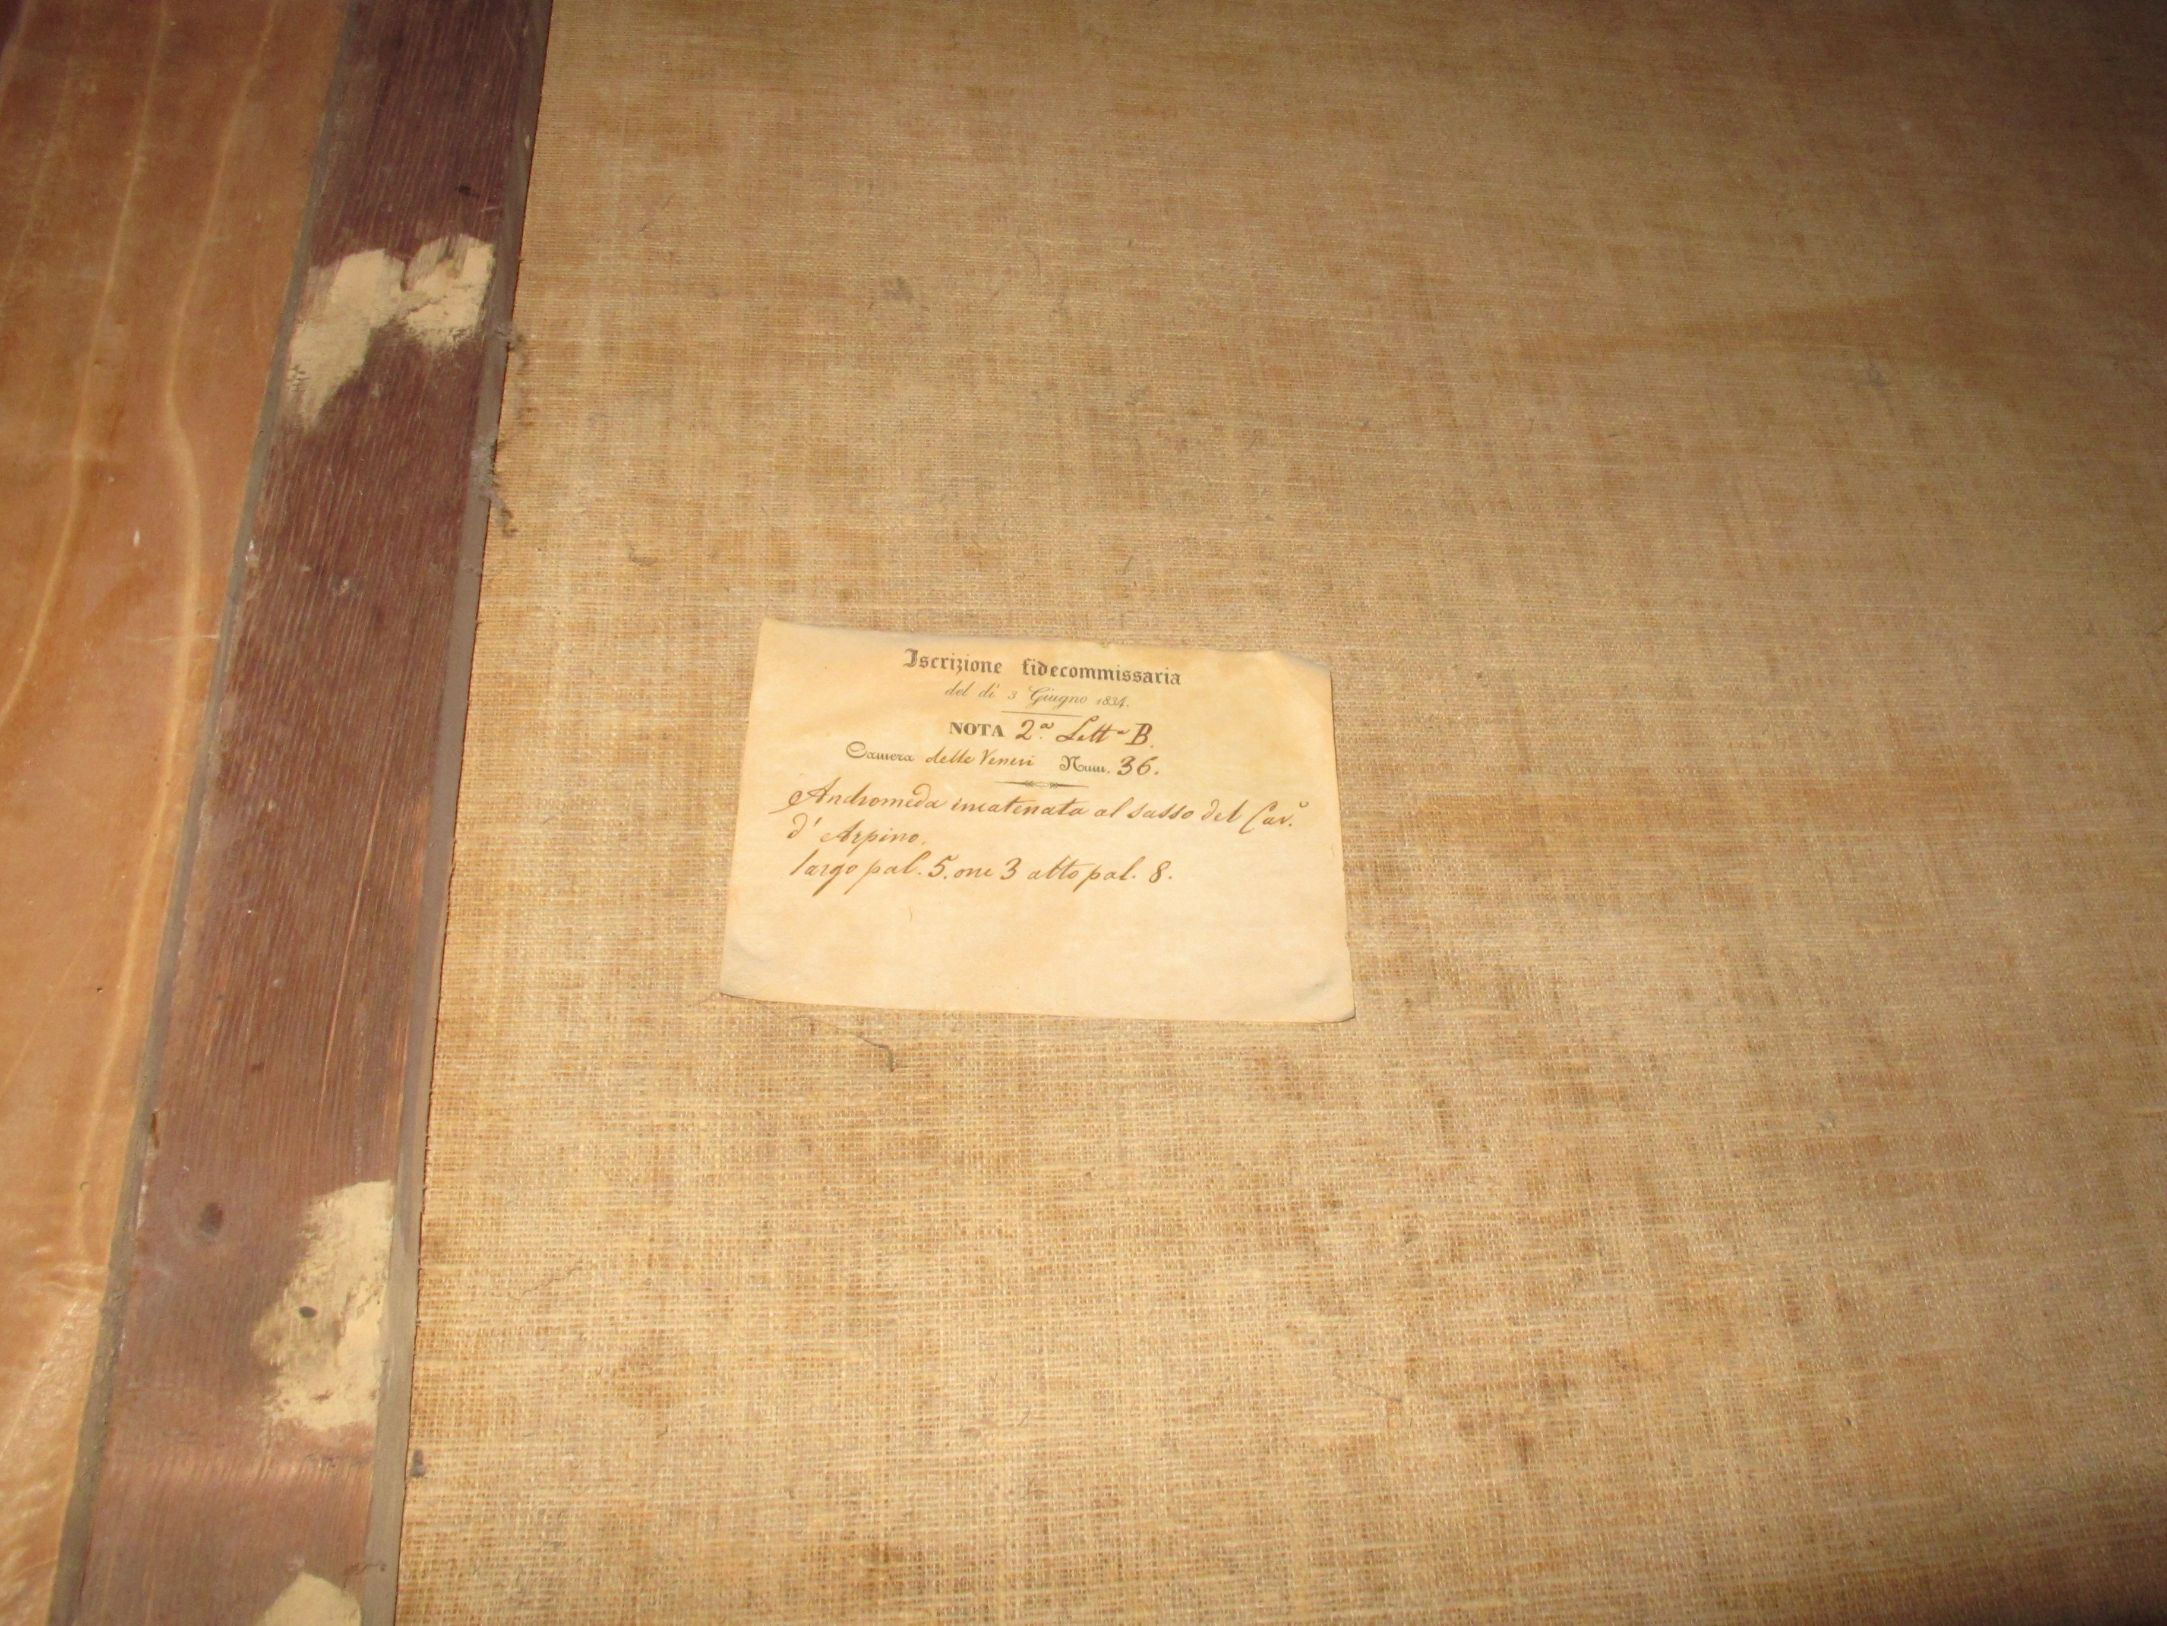 Iscrizione fidecommissaria
del di 3 Giugno 1834.
NOTA 2ª. Lettª B.
Camera delle Veneri Num. 36.
Andromeda incatenata al sasso del Cav.
d' Arpino.
largo pal. 5. onc 3 alto pal. 8.